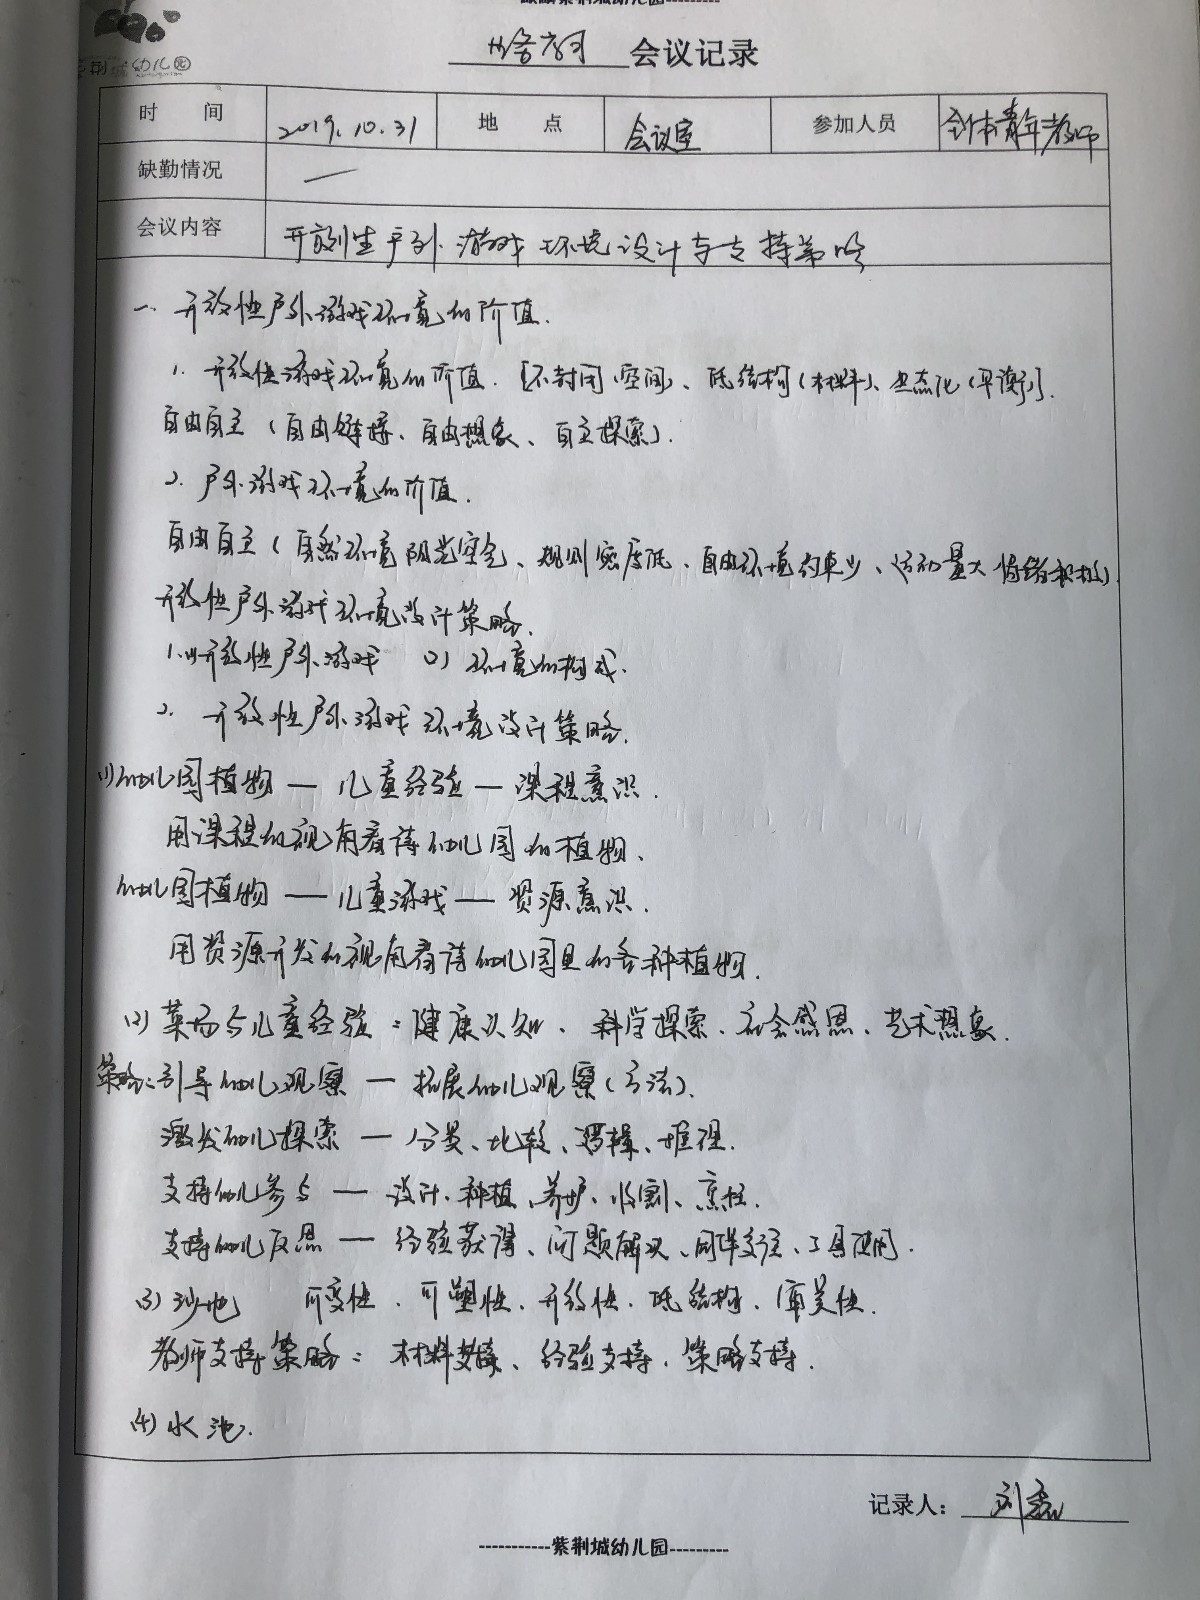 紫荆城幼儿园---------
幼儿园
会议记录
时 间 2019.10.31 地 点 会议室 参加人员 全体青年教师
缺勤情况 —
会议内容 开放性户外游戏环境设计与支持策略
一、开放性户外游戏环境的价值.
1. 开放性游戏环境的价值. [不封闭(空间)、低结构(材料)、生态化(平衡)].
自由自主(自由选择、自由想象、自主探索).
2. 户外游戏环境的价值.
自由自主(自然环境阳光空气、规则密度低、自由环境约束少、运动量大 情绪积极).
开放性户外游戏环境设计策略.
1.(1)开放性户外游戏 (2) 环境的构成.
2. 开放性户外游戏环境设计策略.
(1)幼儿园植物 — 儿童经验 — 课程意识.
用课程的视角看待幼儿园的植物.
幼儿园植物 — 儿童游戏 — 资源意识.
用资源开发的视角看待幼儿园里的各种植物.
(2) 菜场与儿童经验:健康认知、科学探索、社会感恩、艺术想象.
策略:引导幼儿观察 — 拓展幼儿观察(方法).
激发幼儿探索 — 分类、比较、逻辑、推理.
支持幼儿参与 — 设计、种植、养护、收割、烹饪.
支持幼儿反思 — 经验获得、问题解决、同伴交往、工具使用.
(3) 沙地 可变性、可塑性、开放性、低结构、审美性.
教师支持策略:材料支持、经验支持、策略支持.
(4) 水池.
记录人: 刘
-----------紫荆城幼儿园---------